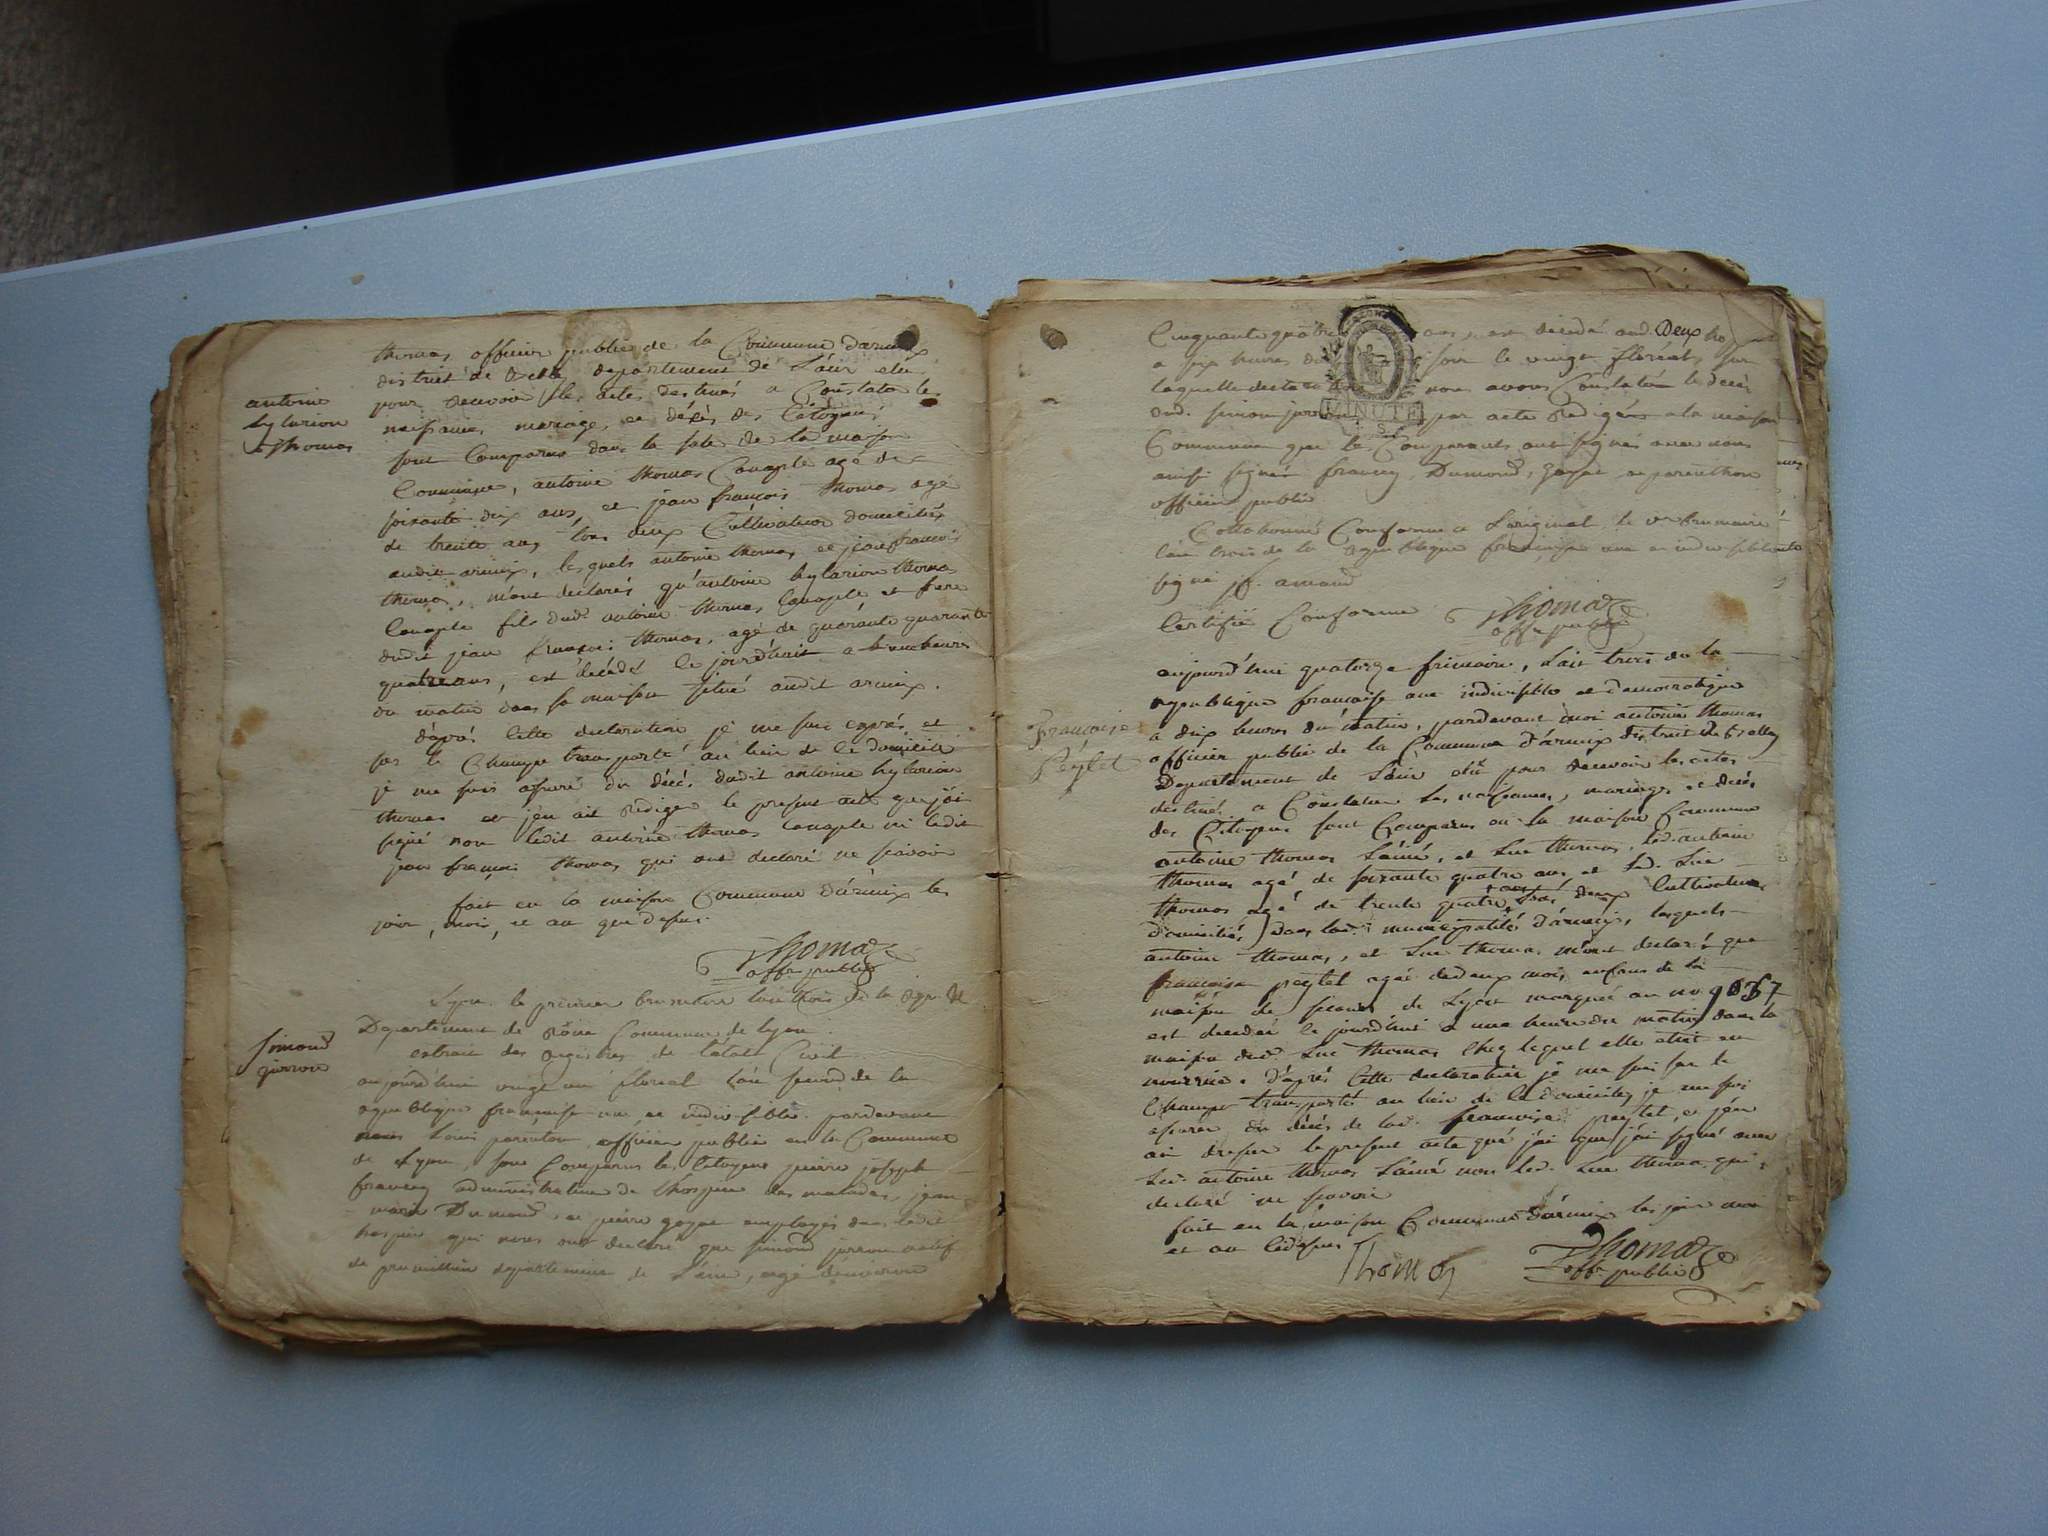 antoine
hylarion
thomas
thomas officier public de la Commune d'armix
district de Belley departement de L'ain elu
pour recevoir les actes destinés a Constater les
naissances, mariage, et décès des Citoyens
sont Comparus dans la sale de la maison
Commune, antoine thomas Canaple agé de
soixante dix ans, et jean françois thomas agé
de trente ans tous deux Cultivateur domiciliés
audit armix, lesquels antoine thomas, et jean françois
thomas, m'ont declarés qu'antoine hylarion thomas
Canaple fils dud. antoine thomas Canaple et frere
dudit jean françois thomas, agé de quarante quarante
quatre ans, est décédé le jourdhuit a heures
du matin dans sa maison situé audit armix.
d'après Cette declaration je me suis et
sur le Champ transporté au lieu de le domicile
je me suis assuré du décès dudit antoine hylarion
thomas et j'en ait rediger le present acte que j'ai
signé non ledit antoine thomas Canaple ni ledit
jean françois thomas qui ont declaré ne scavoir
fait en la maison Commune d'armix les
jour, mois, et an que dessus.
Thomas
offr public
simond
jurron
Lyon le premier brumaire lan trois de la rep.
Departement de Rône Commune de lyon.
extrait des registres de l'état Civil
aujourd'hui vingt un floreal l'an second de la
republique française une et indivisible pardevant
nous Louis parenton officier public en la Commune
de Lyon, sont Comparus les Citoyens pierre joseph
francey administrateur de lhospice des malades, jean
marie Dumond, et pierre gayet employés dans ledit
hospice qui nous ont declaré que simond jurron natif
de departement de L'ain, agé denviron
Cinquante quatre ans, est décédé aud. Deux
a six heures du soir le vingt floréal, sur
laquelle declaration nous avons Constaté le decès
dud. simon jurron par acte Redigé a la maison
Commune que les Comparants ont signés avec nous
MINUTE
ainsi signés francey, Dumond, gayet et parenthon
officier public
Collationné Conforme a L'original le 1er brumaire
l'an trois de la republique française une et indivisible
signé amand
Certifié Conforme Thomas
offr public
françoise
peytel
aujourd'hui quatorze frimaire, L'ait trois de la
republique française une indivisible et democratique
a dix heures du matin, pardevant moi antoine thomas
officier public de la Commune d'armix district de Belley
Departement de L'ain elû pour recevoir les actes
destinés a Constater les naissances, mariages et decès
des Citoyens sont Comparus en la maison Commune
antoine thomas L'ainé, et Luc thomas, led. antoine
thomas agé de soixante quatre ans, et led. Luc
thomas agé de trente quatre ans tous deux Cultivateurs
domiciliés dans lad. municipalité d'armix, lesquels
antoine thomas, et Luc thomas m'ont declaré que
françoise peytel agée de deux mois, enfans de la
maison de secours de Lyon marquée au no 9637
est decedée le jourdhui a une heure du matin dans la
maison dud. Luc thomas Chez lequel elle etoit en
nourrice. d'après Cette declaration je me suis sur le
Champ transporté au lieu de la domicile, je me suis
assuré du décès de lad. françoise peytel, et j'en
ai dresser le present acte que j'ai que j'ai signé avec
led. antoine thomas L'ainé non led. Luc thomas qui a
declaré ne scavoir
fait en la maison Commune d'armix les jour moi
et an que dessus
Thomas Thomas
offr public